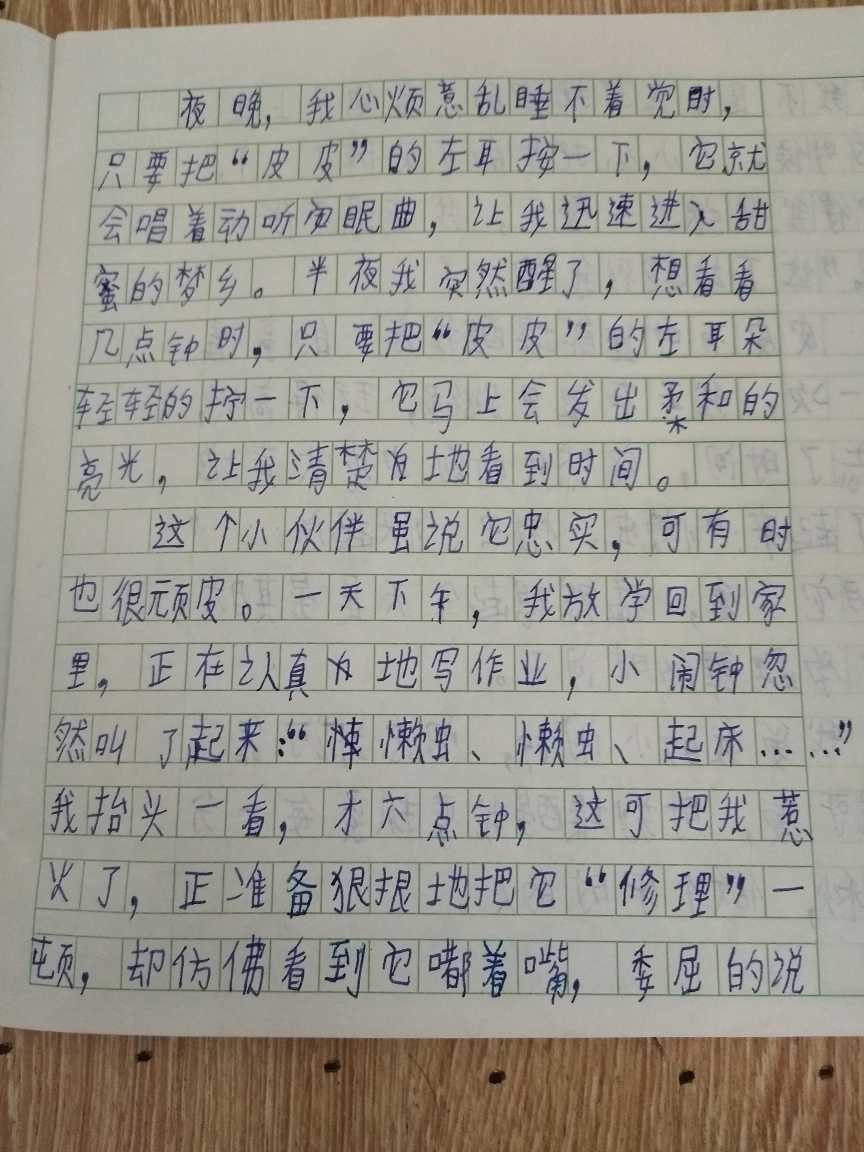 夜晚，我心烦意乱睡不着觉时，
只要把“皮皮”的左耳按一下，它就
会唱着动听安眠曲，让我迅速进入甜
蜜的梦乡。半夜我突然醒了，想看看
几点钟时，只要把“皮皮”的左耳朵
轻轻的拧一下，它马上会发出柔和的
亮光，让我清楚地看到时间。
这个小伙伴虽说它忠实，可有时
也很顽皮。一天下午，我放学回到家
里，正在认真地写作业，小闹钟忽
然叫了起来：“懒虫、懒虫、起床……”
我抬头一看，才六点钟，这可把我惹
火了，正准备狠狠地把它“修理”一
顿，却仿佛看到它嘟着嘴，委屈的说